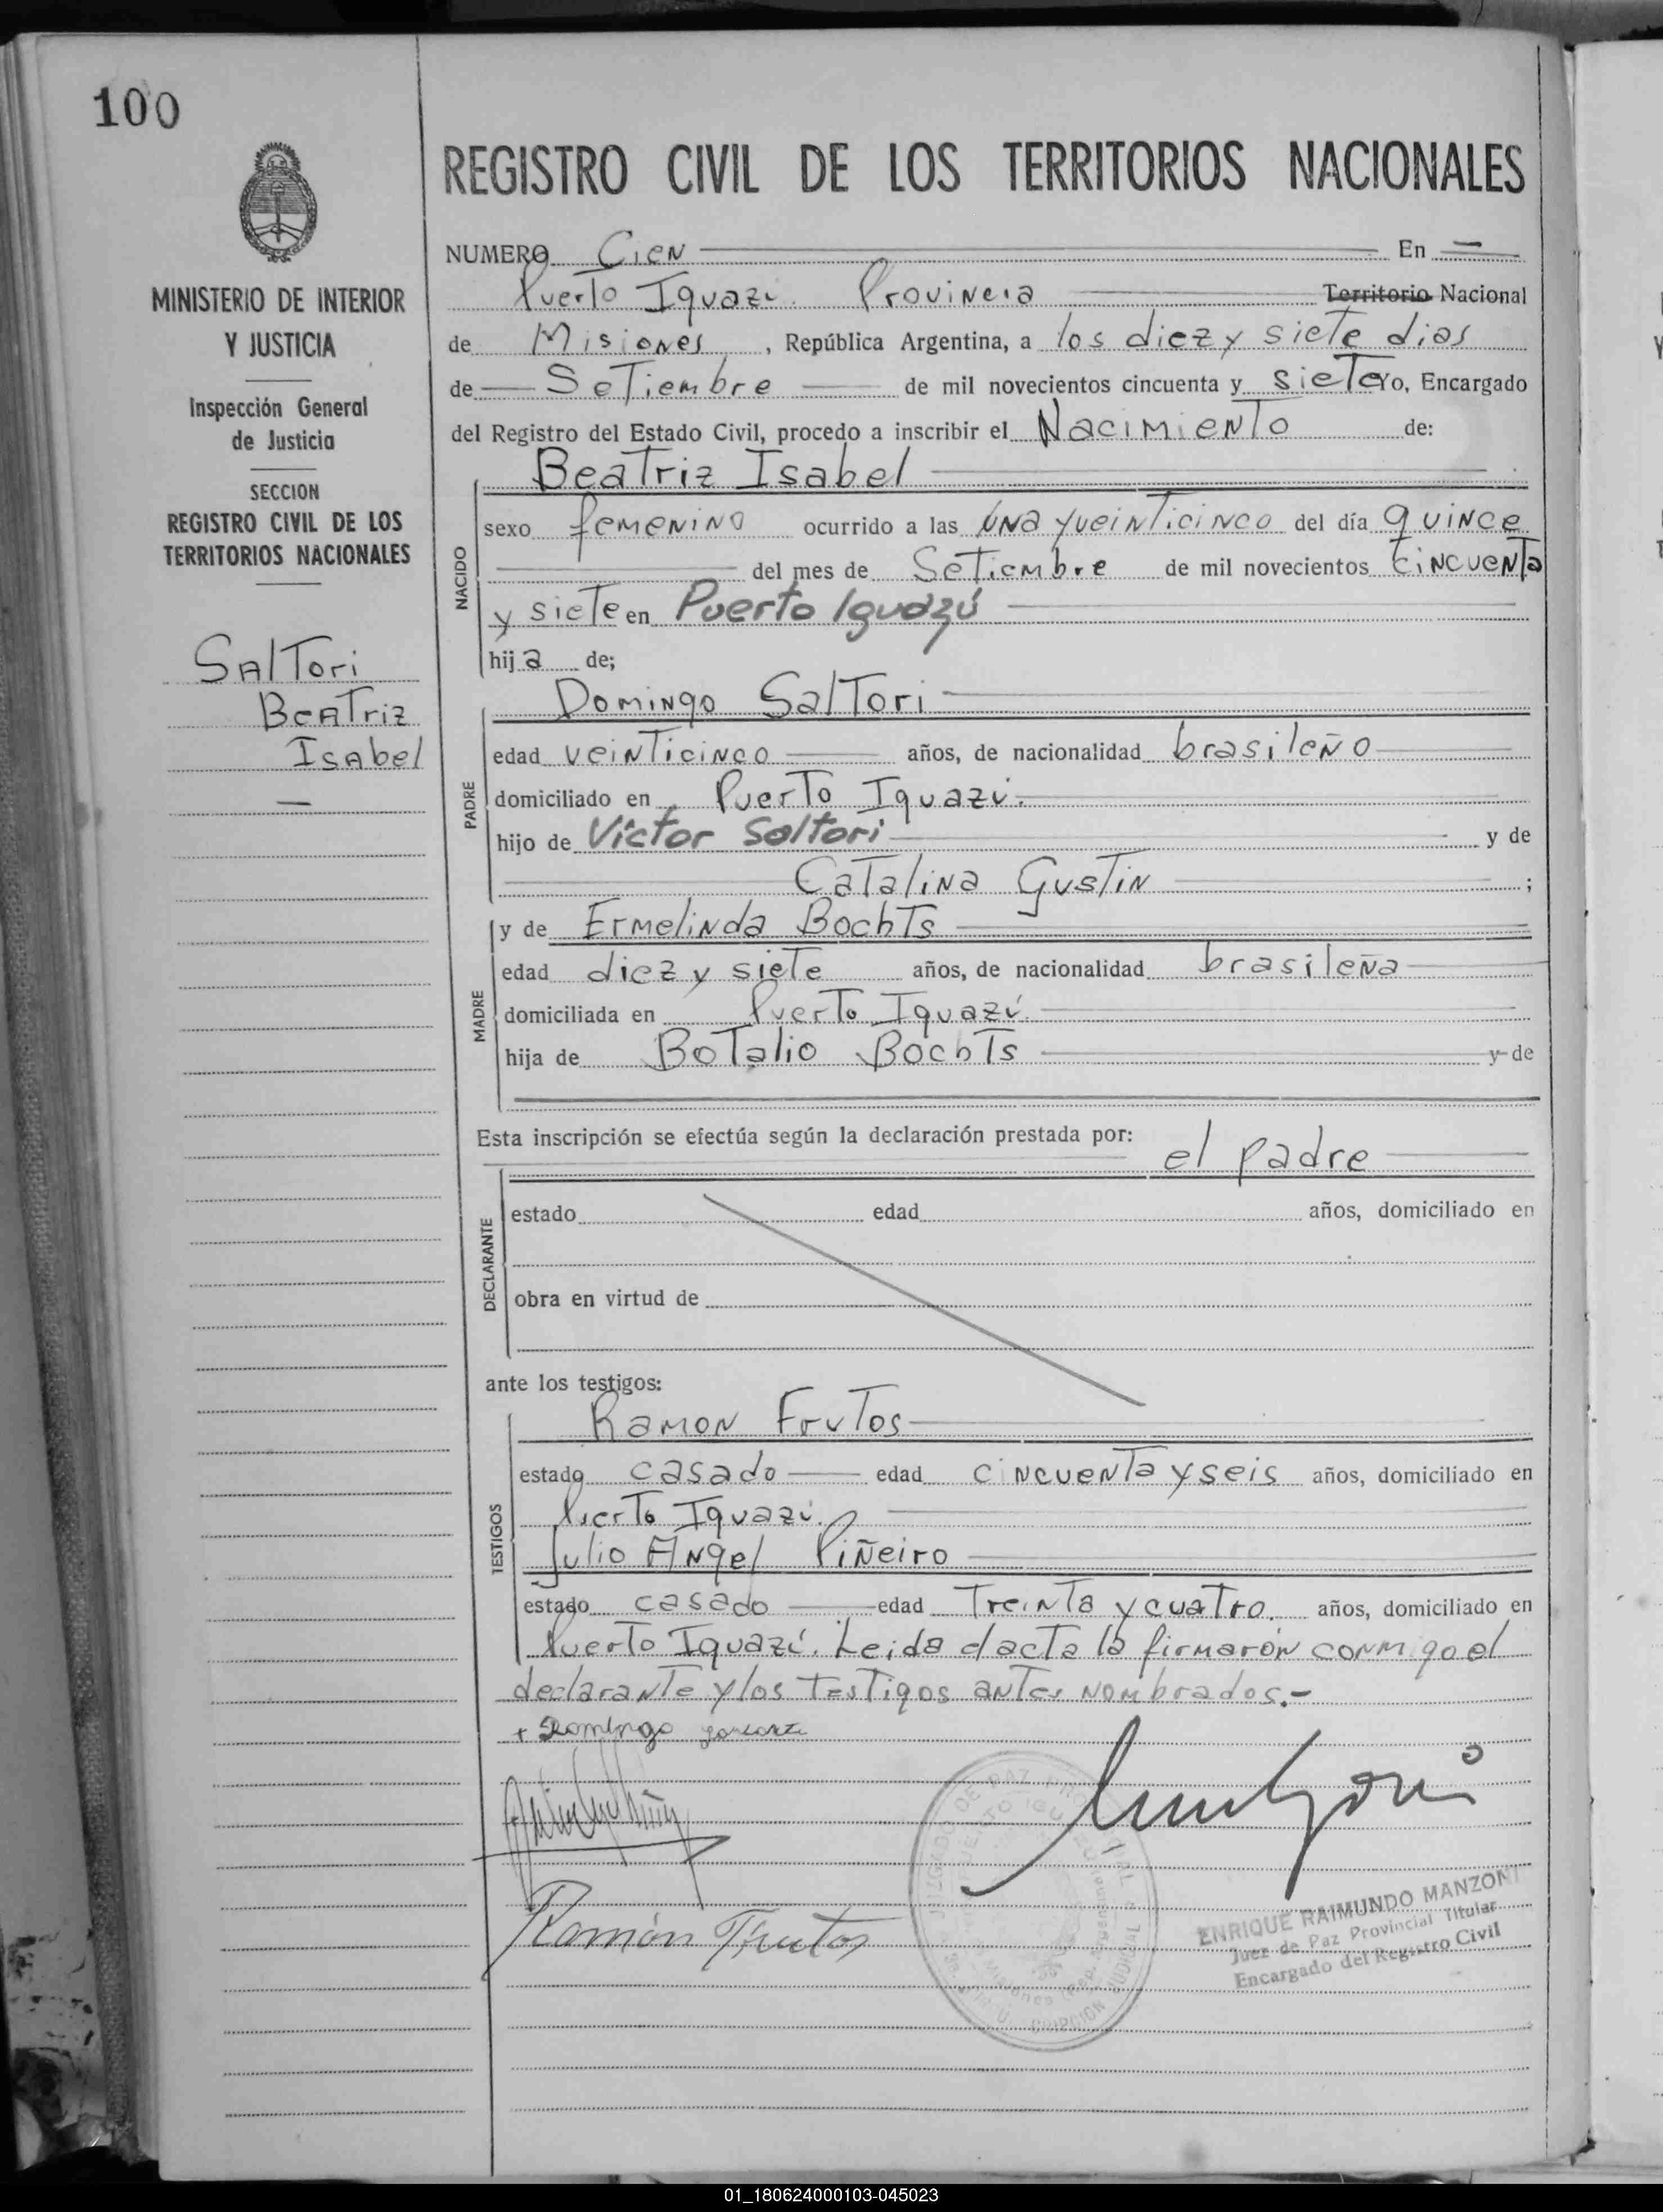 100
MINISTERIO DE INTERIOR
Y JUSTICIA
Inspección General
de Justicia
SECCION
REGISTRO CIVIL DE LOS
TERRITORIOS NACIONALES
Saltori
Beatriz
Isabel
REGISTRO CIVIL DE LOS TERRITORIOS NACIONALES
NUMERO Cien En
Puerto Iguazú. Provincia Territorio Nacional
de Misiones, República Argentina, a los diez y siete dias
de Setiembre de mil novecientos cincuenta y siete Yo, Encargado
del Registro del Estado Civil, procedo a inscribir el Nacimiento de:
Beatriz Isabel
NACIDO
sexo femenino ocurrido a las una y veinticinco del día quince
del mes de Setiembre de mil novecientos cincuenta
y siete en Puerto Iguazú
hija de;
Domingo Saltori
PADRE
edad veinticinco años, de nacionalidad brasileño
domiciliado en Puerto Iguazú.
hijo de Víctor Saltori y de
Catalina Gustin ;
MADRE
y de Ermelinda Bochts
edad diez y siete años, de nacionalidad brasileña
domiciliada en Puerto Iguazú.
hija de Botalio Bochts y de
Esta inscripción se efectúa según la declaración prestada por: el padre
DECLARANTE
estado edad años, domiciliado en
obra en virtud de
ante los testigos:
TESTIGOS
Ramon Frutos
estado casado edad cincuenta y seis años, domiciliado en
Puerto Iguazú.
Julio Angel Piñeiro
estado casado edad Treinta y cuatro. años, domiciliado en
Puerto Iguazú. Leida el acta la firmarón conmigo el
declarante y los testigos antes nombrados.-
+ Domingo
Ramón Frutos
ENRIQUE RAIMUNDO MANZONI
Juez de Paz Provincial Titular
Encargado del Registro Civil
01_180624000103-045023